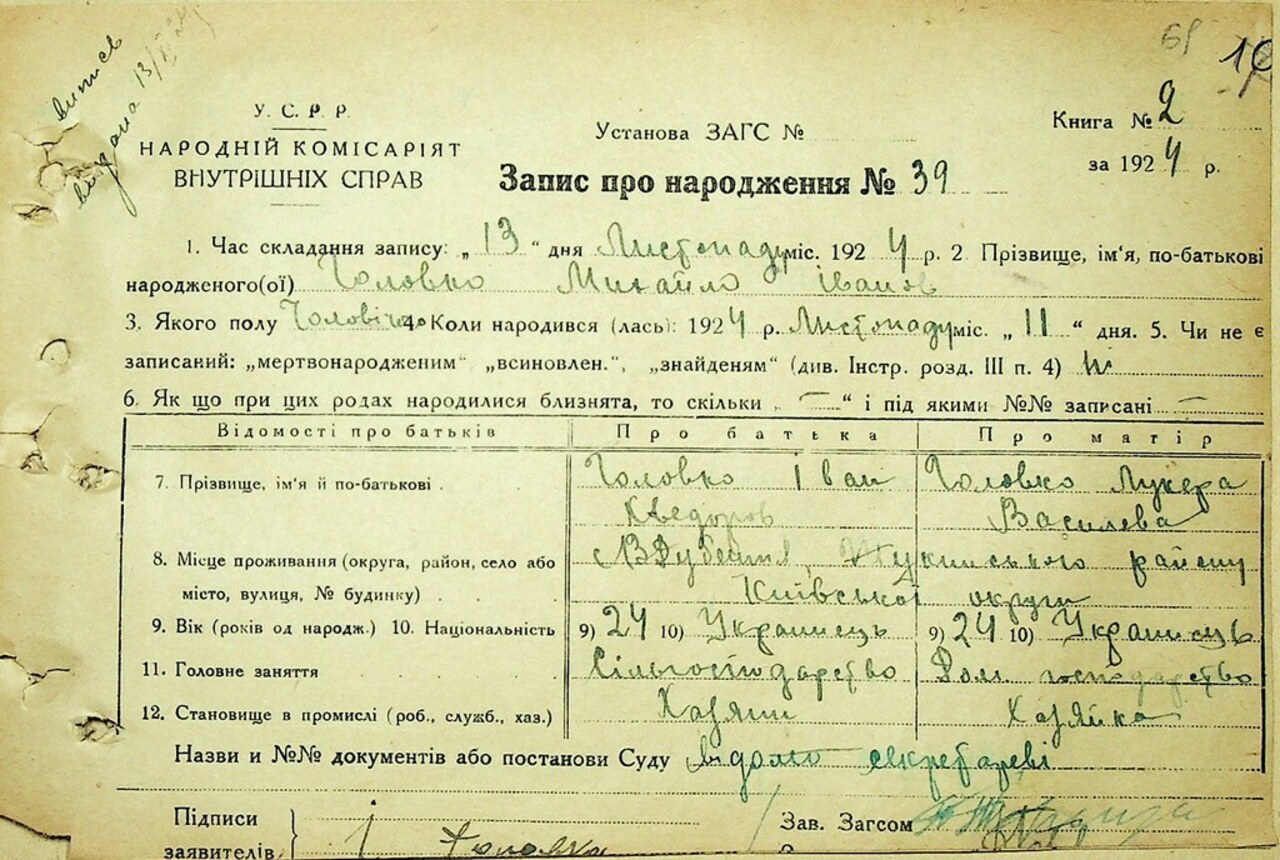 виписъ
видана 13/
10
У. С. Р. Р.
НАРОДНІЙ КОМІСАРІЯТ
ВНУТРІШНІХ СПРАВ
Установа ЗАГС №
Книга № 2
за 1924 р.
Запис про народження № 39
1. Час складання запису: „13“ дня Листопаду міс. 1924 р. 2. Прізвище, ім'я, по-батькові
народженого(ої) Головко Михайло Іванов
3. Якого полу Чоловічого 4. Коли народився (лась): 1924 р. Листопаду міс. „11“ дня. 5. Чи не є
записаний: „мертвонародженим“ „всиновлен.“, „знайденям“ (див. Інстр. розд. III п. 4) ні
6. Як що при цих родах народилися близнята, то скільки „—“ і під якими №№ записані —
Відомості про батьків Про батька Про матір
7. Прізвище, ім'я й по-батькові . Головко Іван Головко Лукера
Хведоров Василева
8. Місце проживання (округа, район, село або району
місто, вулиця, № будинку) . . Київської округи
9. Вік (років од народж.) 10. Національність 9) 24 10) Українець 9) 24 10) Українець
11. Головне заняття Сільгосподарство Дом господарство
12. Становище в промислі (роб., служб., хаз.) Хазяїн Хазяйка
Назви и №№ документів або постанови Суду відомо секретареві
Підписи
заявителів
І Головко
Зав. Загсом